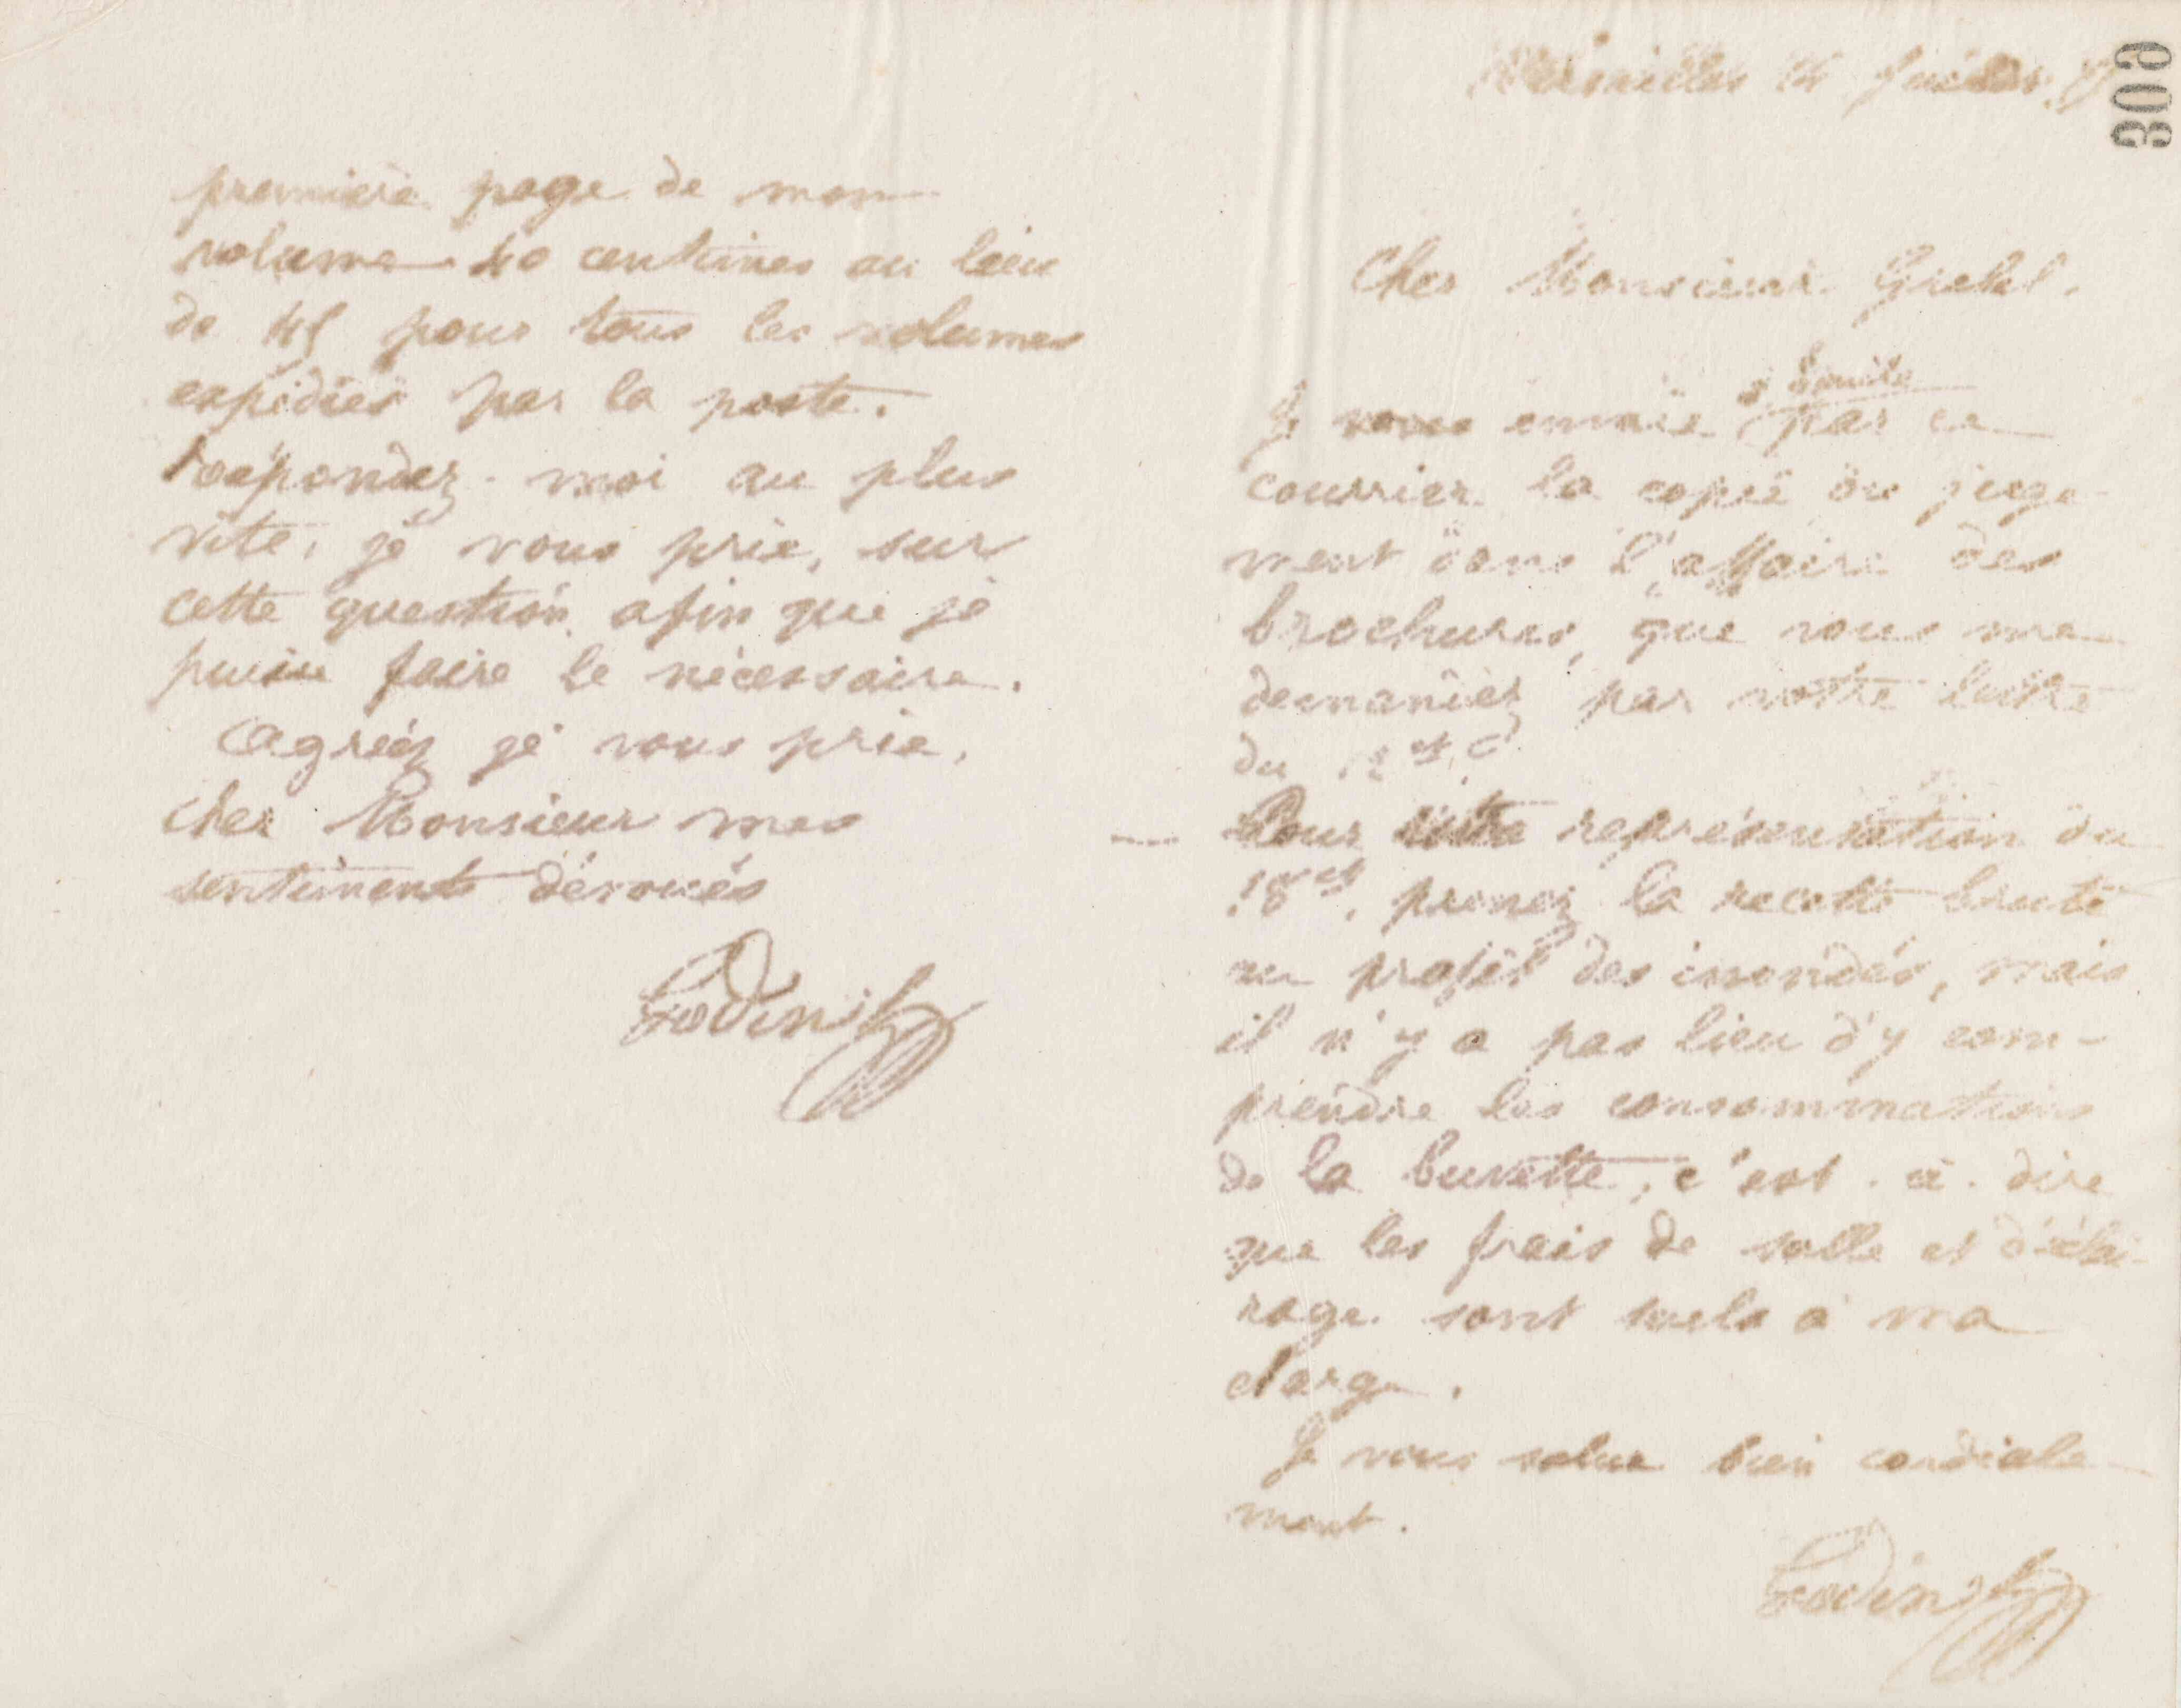 première page de mon
volume 40 centimes au lieu
de 45 pour tous les volumes
expédiés par la poste.
Répondez-moi au plus
vite, je vous prie, sur
cette question afin que je
puisse faire le nécessaire.
Agréez je vous prie,
cher Monsieur mes
sentiments dévoués
Godin
309
Versailles 14 Juillet
Cher Monsieur Grebel.
à Emile
Je vous envoie par ce
courrier la copie du juge-
ment dans l'affaire des
brochures, que vous me
demandiez par votre lettre
du 12 ct
Pour votre représentation du
18 ct, prenez la recette brute
au profit des inondés, mais
il n'y a pas lieu d'y com-
prendre les consommations
de la buvette, c'est-à-dire
que les frais de salle et d'éclai-
rage sont seuls à ma
charge.
Je vous salue bien cordiale-
ment.
Godin